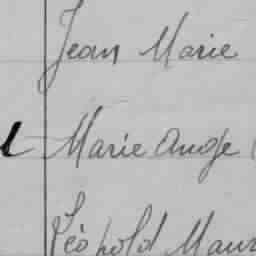 Jean Marie
Marie Ange
Léopold